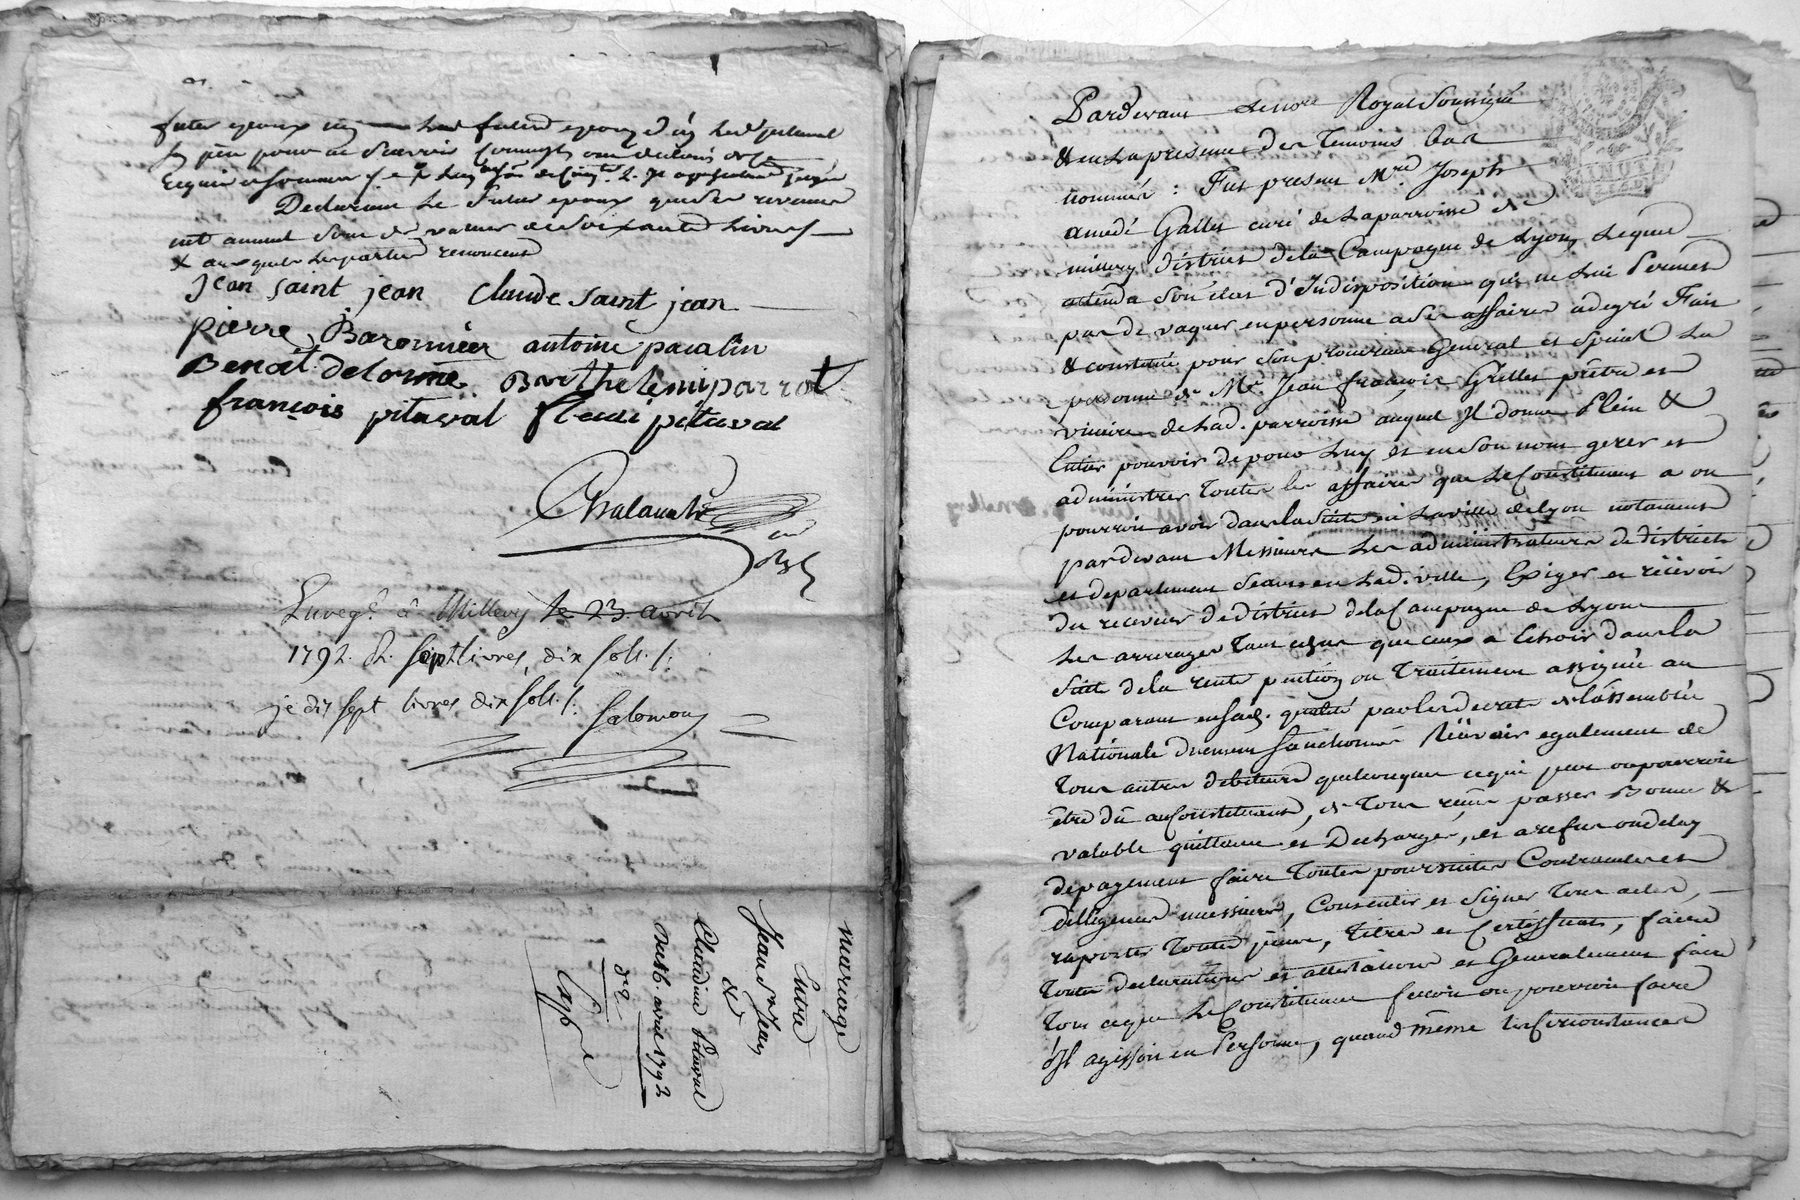 futur epoux
Declarant le futur epoux que ses revenus
annuel sont de valeur de soixante Livres
& a ce que les parties renoncent
Jean saint jean claude saint jean
pierre Baronnier antoine paralin
Benoit delorme Barthelemi parrot
françois pitaval fleuri pitaval
Enreg.é à Millery le 23 avril
1792. R. sept livres, dix sols /:
je dis sept livres dix sols /: Salomon
mariage
Entre
Jean St Jean
&
Claudine Pitaval
du 16. avril 1792
Exp.
Pardevant le no.re Royal soussigné
& en la presence des temoins bas
nommés : Fut present M.re Joseph
amedé Gallet curé de la parroisse de
millery district de la Campagne de Lyon, Lequel
attendu son état d'Indisposition qui ne lui Permet
pas de vaquer en personne a ses affaires a de gré Fait
& constitué pour son procureur General et special La
personne de M.e Jean françois Grillet prêtre et
vicaire de lad. parroisse auquel Il donne Plein &
Entier pouvoir de pour Luy et en son nom gerer et
administrer toutes les affaires que le Constituant a ou
pourroit avoir dans la suite en la ville de Lyon notament
pardevant Messieurs les administrateurs de district
et departement seants en lad. ville, Exiger et recevoir
du receveur de district de la Campagne de Lyon
les arrerages tant echus que ceux a echoir dans la
suite de la rente pention ou traitement assignée au
Comparant en sad. qualité par les decrets de l'assemblée
Nationale duement sanctionnés Recevoir egalement de
tous autres debiteurs quelconques ce qui peut ou pourroit
être dû au Constituant, de tout reçu passer Bonne &
valable quittance et Decharge, et a refus ou delay
de payement faire toutes poursuites Contraintes et
dilligences necessaires, Consentir et signer tous actes,
raporter toutes pieces, titres et Certifficats, faire
toutes declarations et attestations et Generalement faire
tout ce que le Constituant feroit ou pourroit faire
s'Il agissoit en Personne, quand même les Circonstances